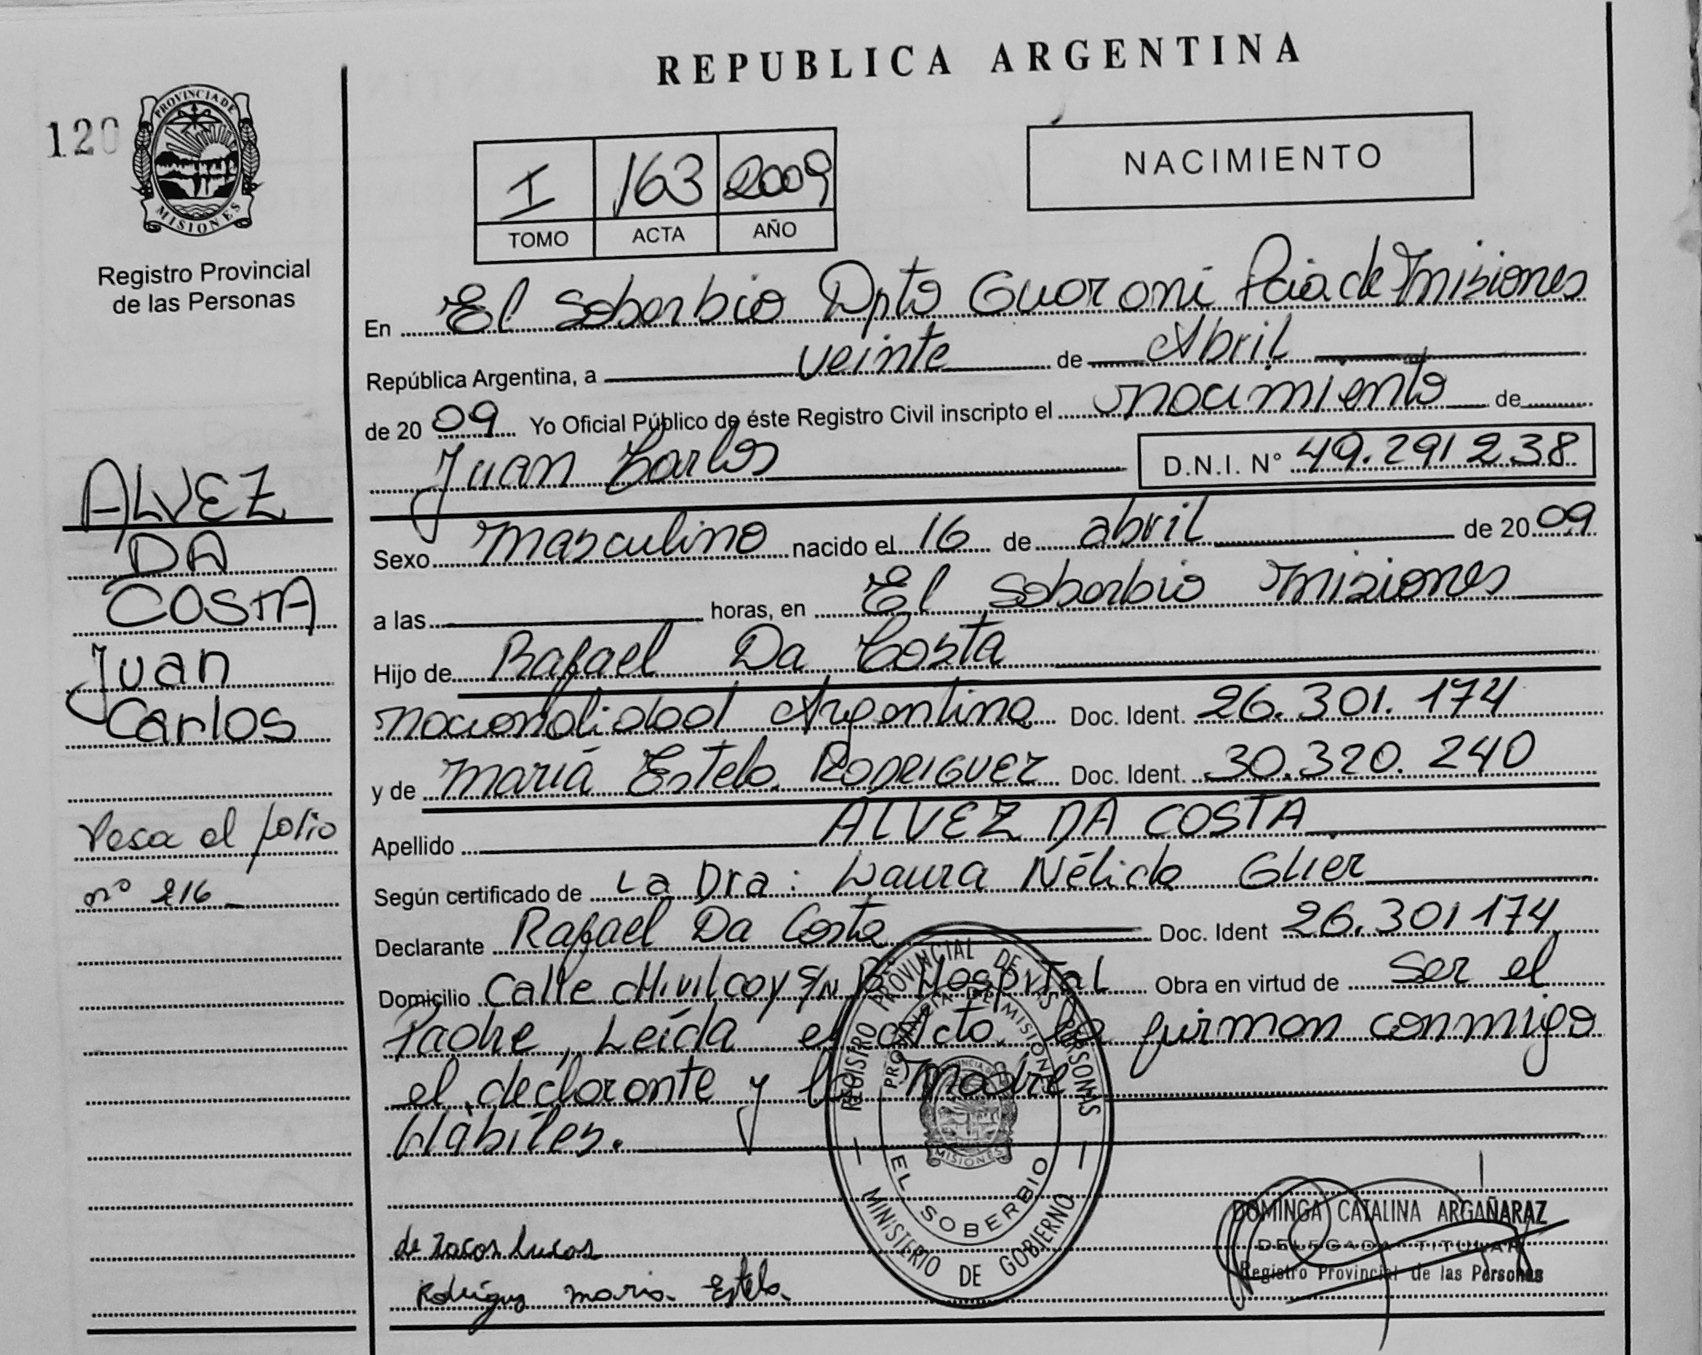 REPUBLICA ARGENTINA
120
PROVINCIA DE
MISIONES
Registro Provincial
de las Personas
I 163 2009
TOMO ACTA AÑO
NACIMIENTO
En El Soberbio Dpto Guaraní Pcia de Misiones
República Argentina, a veinte de Abril
de 2009 Yo Oficial Público de éste Registro Civil inscripto el nacimiento de
Juan Carlos D.N.I. Nº 49.291238
Sexo masculino nacido el 16 de abril de 2009
a las horas, en El Soberbio Misiones
Hijo de Rafael Da Costa
nacionalidad Argentina Doc. Ident. 26.301.174
y de María Estela RODRIGUEZ Doc. Ident. 30.320.240
Apellido ALVEZ DA COSTA
Según certificado de La Dra: Laura Nélida Glier
Declarante Rafael Da Costa Doc. Ident 26.301174
Domicilio Calle Chivilcoy S/N Bº Hospital Obra en virtud de ser el
Padre, Leída el acta, la firman conmigo
el declarante y la Madre
Hábiles.
ALVEZ
DA
COSTA
Juan
Carlos
Vesa el folio
nº 216
REGISTRO PROVINCIAL DE LAS PERSONAS
PROVINCIA DE MISIONES
MISIONES
EL SOBERBIO
MINISTERIO DE GOBIERNO
DOMINGA CATALINA ARGAÑARAZ
DELEGADA TITULAR
Registro Provincial de las Personas
Rodriguez maria Estela